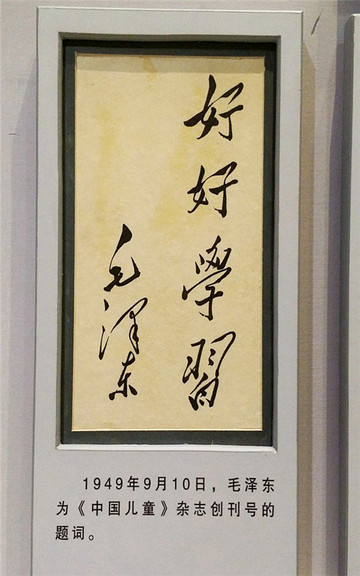 好好學習
毛澤东
1949年9月10日，毛泽东
为《中国儿童》杂志创刊号的
题词。